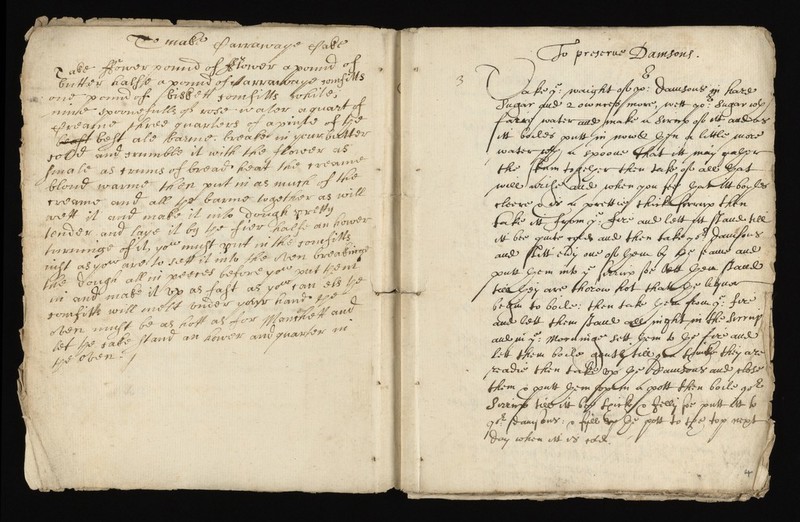 To make Carrawaye Cake
Take fower pound of flower a pound of
butter halfe a pound of Carrawaye comfitts
one pound of biskett comfitts white:
nine spoonefulls of rose water a quart of
Creame three quarters of a pinte of the
best ale barme breake in your butter
cold and crumble it with the flower as
smale as crums of bread heat the creame
bloud warme then put in as much of the
creame and all the barme together as will
wett it and make it into dough pretty
tender and laye it by the fier halfe an hower
turninge of it, you must put in the comfitts
just as you are to sett it into the oven breakinge
the dough all in peeces before you put them
in and make it up as fast as you can els the
comfitts will melt under your hand. the
oven must be as hott as for Manchett and
let the cake stand an hower and quarter in
the oven:
To preserve Damsons.
3
Take ye waight of yor: Damsons in hard
Sugar and 2 ownces more, wett yor: Sugar with
faire water and make a Sirrup of itt and as
itt boiles putt in now & then a little more
water with a spoone that itt may gather
the skum together then take of all that
will arise and when you see that itt boyles
cleere & is a prettie thick sirrup then
take itt from ye: fire and lett itt stand till
itt bee quite cold and then take yor: Damsons
and slitt every one of them by the seame and
putt them into ye sirrup soe lett them stand
till they are thorow hot that the liquor
begin to boile: then take them from ye: fire
and lett them stand all night in the Sirrup
and in ye: Morninge sett them to the fire and
lett them boile till you thinke they are
readie then take up the Damsons and
them & putt them in a pott then boile yor
Sirrup till itt bee thick & Jelly soe putt itt to
yor damsons: & fill up the pott to the top next
day when itt is cold
4